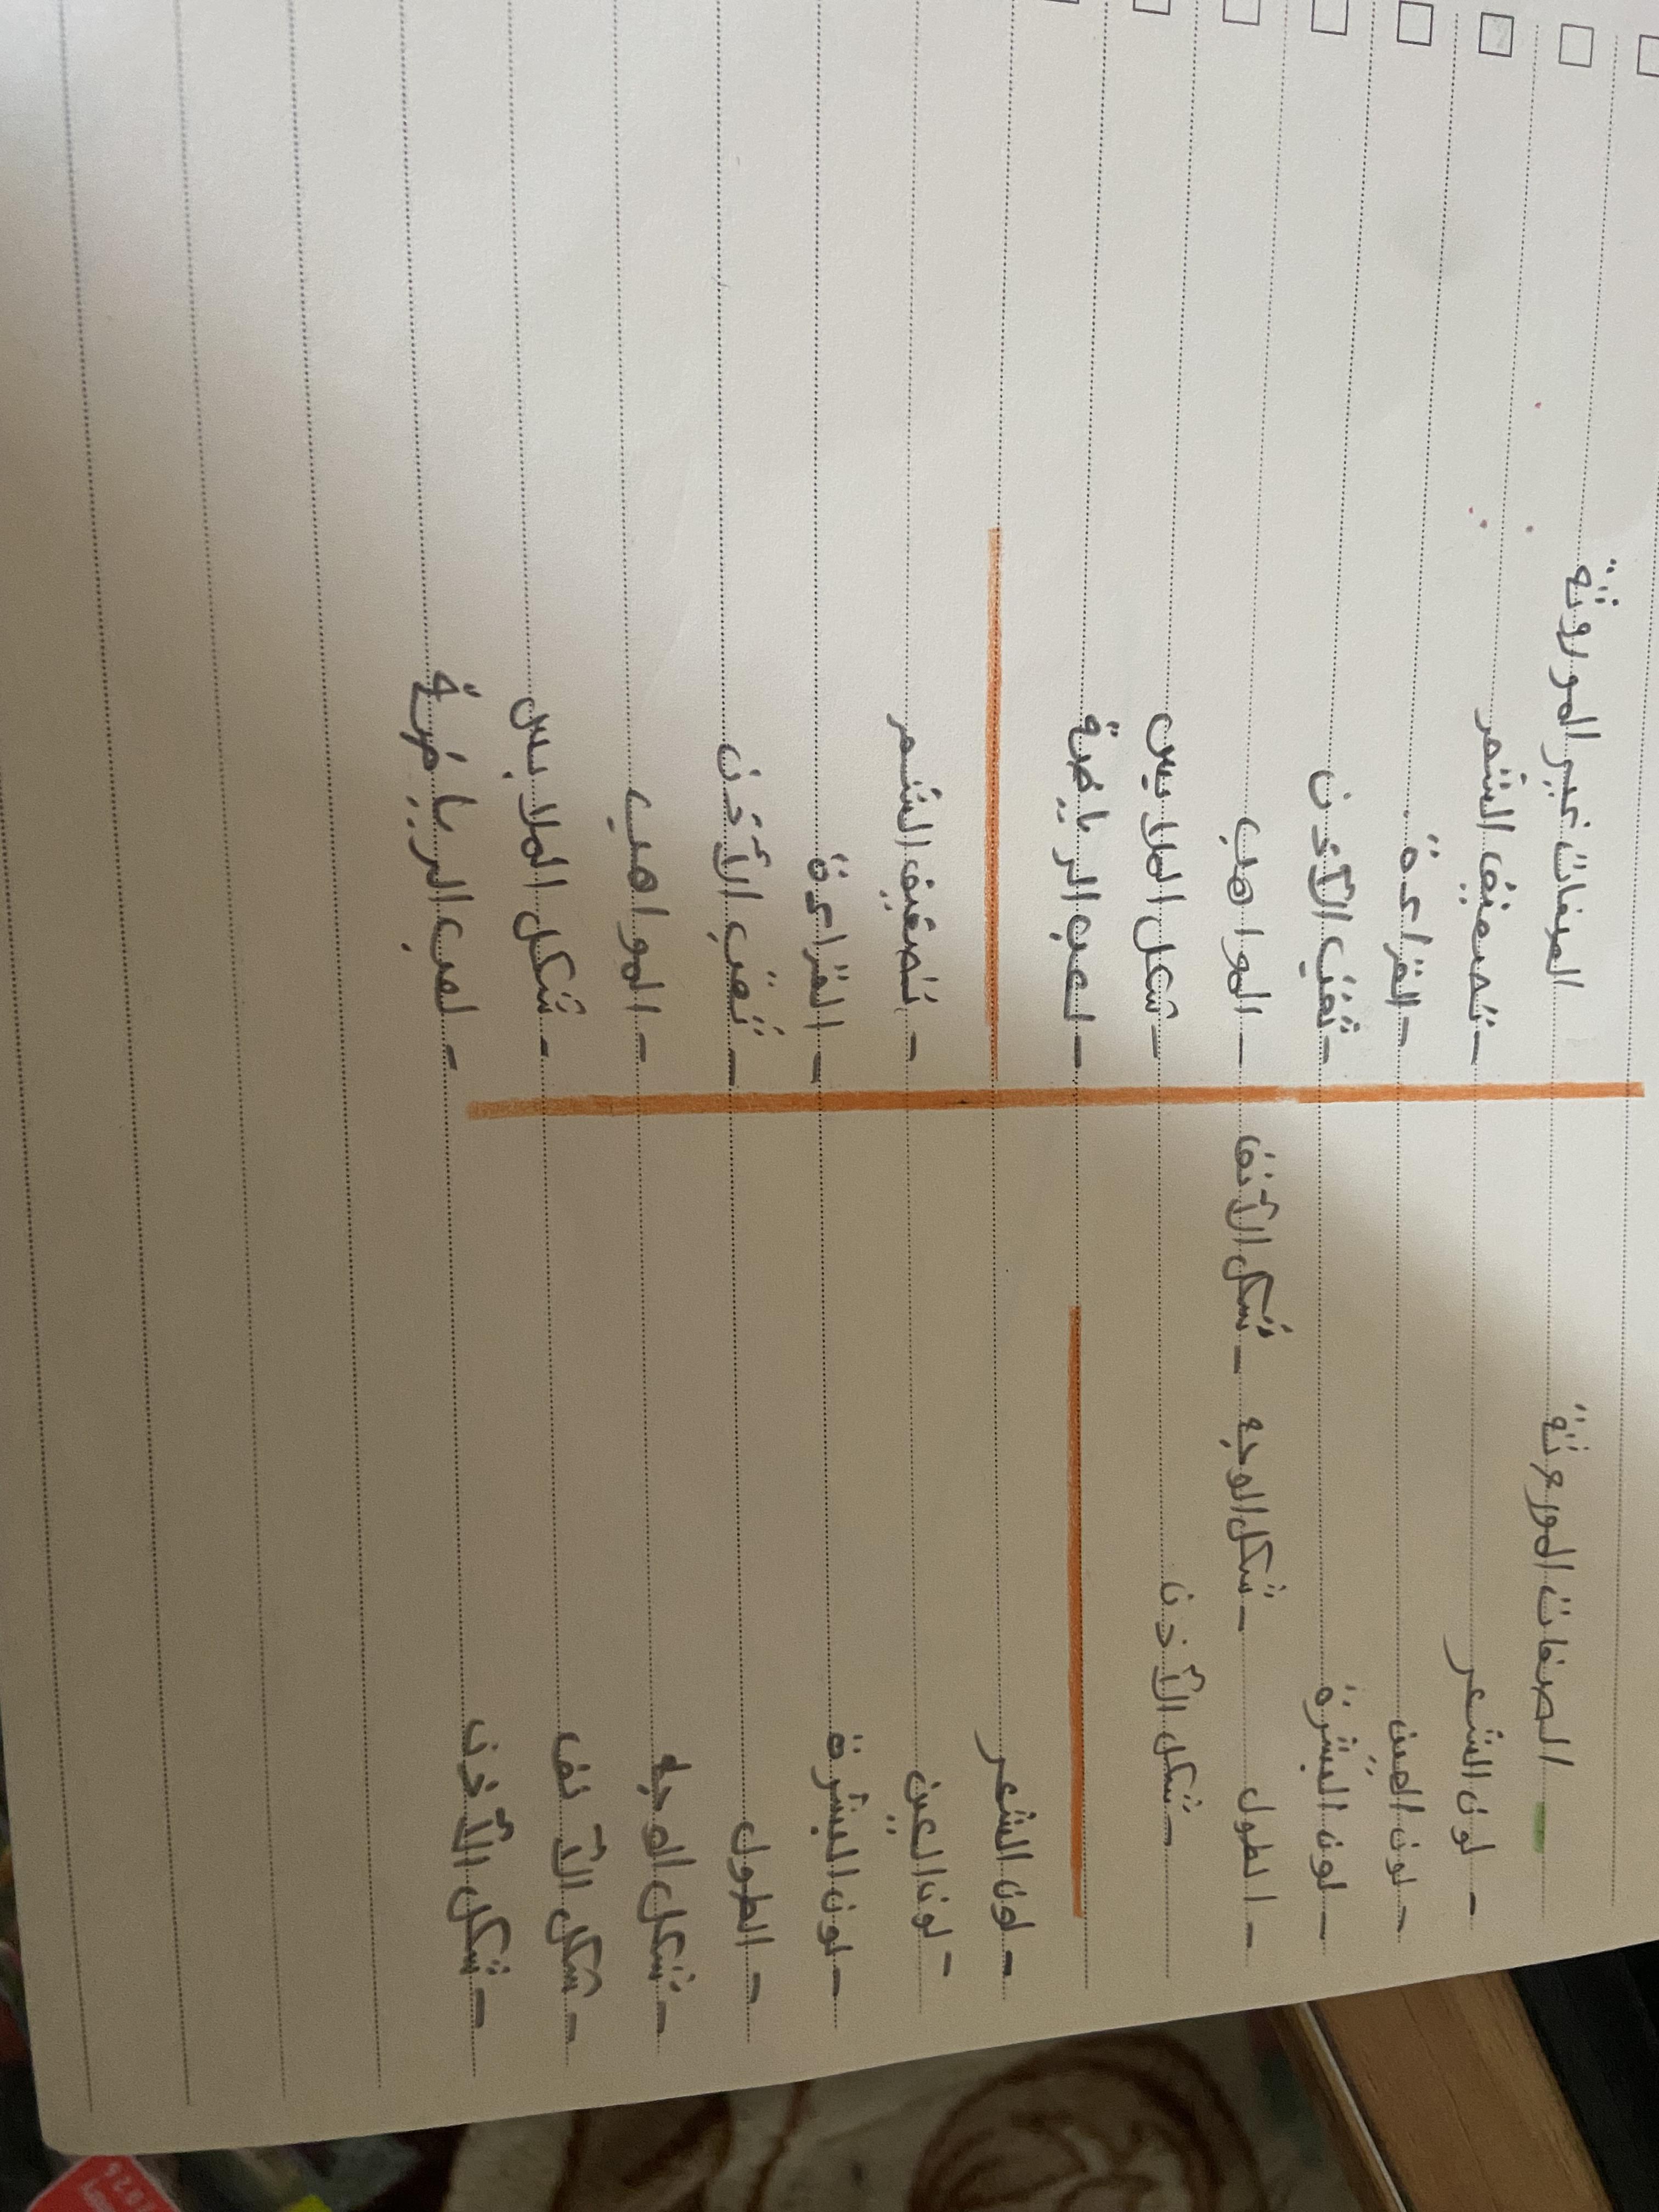 الصفات المورعثة
- لون الشعر
- لون العين
- لون البشرة
- الطول - شكل الوجه - شكل الأنف
- شكل الأذن
- لون الشعر
- لون العين
- لون البشرة
- الطول
- شكل الوجه
- شكل الأنف
- شكل الأذن
الصفات غير الموروثة
الشعر
- القراءة
- ثقب الأذن
- المواهب
- شكل الملابس
- لعب الرياضة
- تصفيف الشعر
- القراءة
- ثقب الأذن
- المواهب
- شكل الملابس
- لعب الرياضة